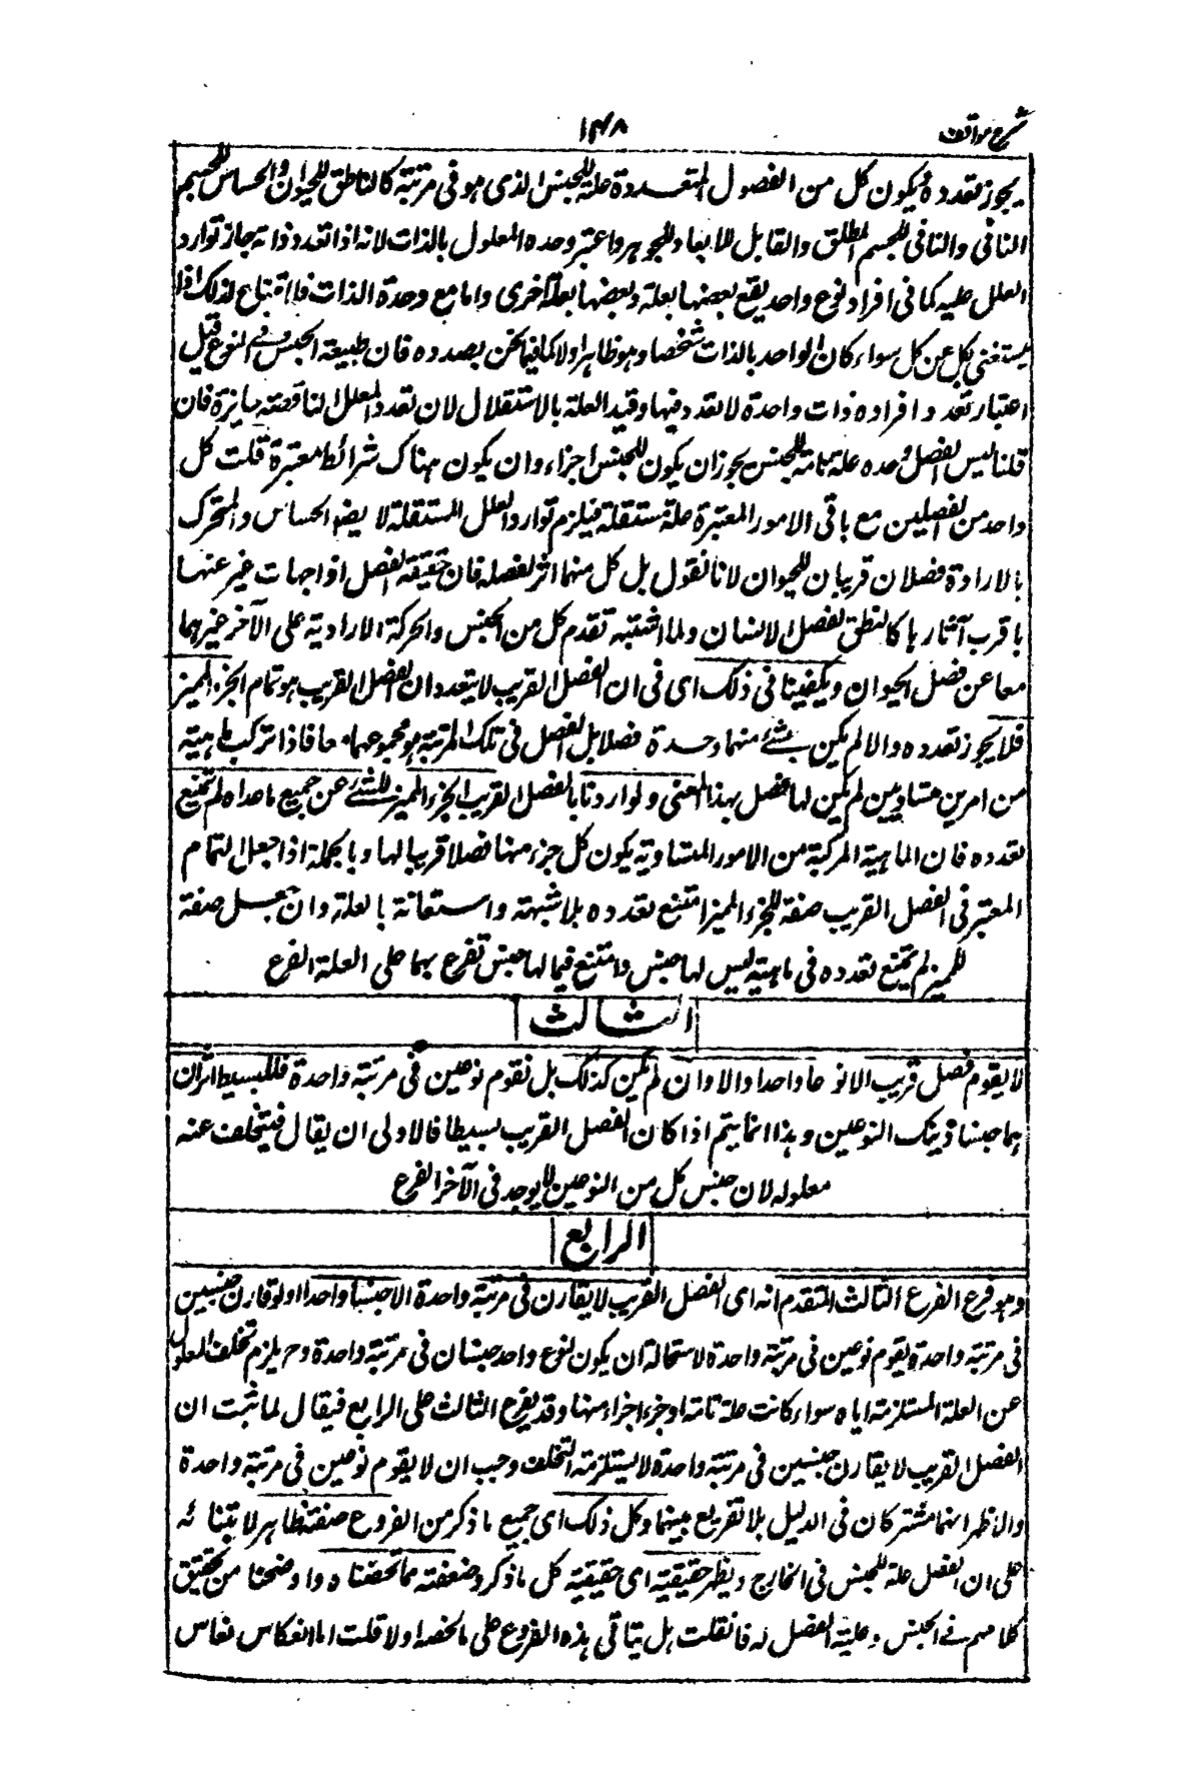 شرح مواقف
١٤٨
يجوز تعدده فيكون كل من الفصول المتعددة علة للجنس الذى هو فى مرتبة كالناطق للحيوان والحساس للجسم
النامى والنامى للجسم المطلق والقابل للابعاد للجوهر واعتبر وحدة المعلول بالذات لانه اذا تعدد ذاته جاز توارد
العلل عليه كما فى افراد نوع واحد يقع بعضها بعلة وبعضها بعلة اخرى واما مع وحدة الذات فلا امتناع لذلك اذا
يستغنى بكل عن كل سواء كان الواحد بالذات شخصا وهو ظاهر اولا كما فيما نحن بصدده فان طبيعة الجنس فى النوع قبل
اعتبار تعدد افراده ذات واحدة لا تعدد فيها وقيد العلة بالاستقلال لان تعدد العلل الناقصة جائزة فان
قلنا ليس الفصل وحده علة تامة للجنس يجوز ان يكون للجنس اجزاء وان يكون هناك شرائط معتبرة قلت كل
واحد من الفصلين مع باقى الامور المعتبرة علة مستقلة فيلزم توارد العلل المستقلة لا يضر الحساس والمتحرك
بالارادة فصلان قريبان للحيوان لانا نقول بل كل منهما اثر لفصله فان حقيقة الفصل اذا جهلت غير عنها
باقرب آثارها كالنطق لفصل الانسان ولما اشتبه تقدم كل من الجنس والحركة الارادية على الآخر غير هما
معا عن فصل الحيوان ويكفينا فى ذلك اى فى ان الفصل القريب لا يتعدد ان الفصل القريب هو تمام الجزء المميز
فلا يجوز تعدده والا لم يكن شئ منهما وحده فصلا بل الفصل فى تلك المرتبة هو مجموعهما معا فاذا تركب ماهية
من امرين متساويين لم يكن لها فصل بهذا المعنى ولو اردنا بالفصل القريب الجزء المميز للشئ عن جميع ماعداه لم يمتنع
تعدده فان الماهية المركبة من الامور المتساوية يكون كل جزء منها فصلا قريبا لها وبالجملة اذا جعل التمام
المعتبر فى الفصل القريب صفة للجزء المميز امتنع تعدده بلا شبهة واستعانة بالعلة وان جعل صفة
للميز لم يمتنع تعدده فى ماهية ليس لها جنس وامتنع فيما لها جنس تفرع بها على العلة الفرع
الثالث
لا يقوم فصل قريب الا نوعا واحدا والا وان لم يكن كذلك بل تقوم نوعين فى مرتبة واحدة فللبسيط اثران
هما جنسا ذينك النوعين وهذا انما يتم اذا كان الفصل القريب بسيطا فالاولى ان يقال فيتخلف عنه
معلوله لان جنس كل من النوعين لا يوجد فى الآخر الفرع
الرابع
وهو فرع الفرع الثالث المتقدم انه اى الفصل القريب لا يقارن فى مرتبة واحدة الا جنسا واحدا اولو قارن جنسين
فى مرتبة واحدة يقوم نوعين فى مرتبة واحدة لاستحالة ان يكون لنوع واحد جنسان فى مرتبة واحدة وح يلزم تخلف المعلول
عن العلة المستلزمة اياه سواء كانت علة تامة او جزء اجزاء منها وقد يفرع الثالث على الرابع فيقال لما ثبت ان
الفصل القريب لا يقارن جنسين فى مرتبة واحدة لا يستلزمه التخلف وجب ان لا يقوم نوعين فى مرتبة واحدة
والاظهر انهما مشتركان فى الدليل بلا تفريع بينهما وكل ذلك اى جميع ما ذكر من الفروع ضعفه ظاهر لابتنائه
على ان الفصل علة للجنس فى الخارج ويظهر حقيقيته اى حقيقية كل ما ذكر وضعفه مما لخصناه واوضحنا من تحقيق
كلامهم فى الجنس وعلية الفصل له فان قلت هل يتاتى هذه الفروع على ما لخصه اولا قلت اما انعكاس